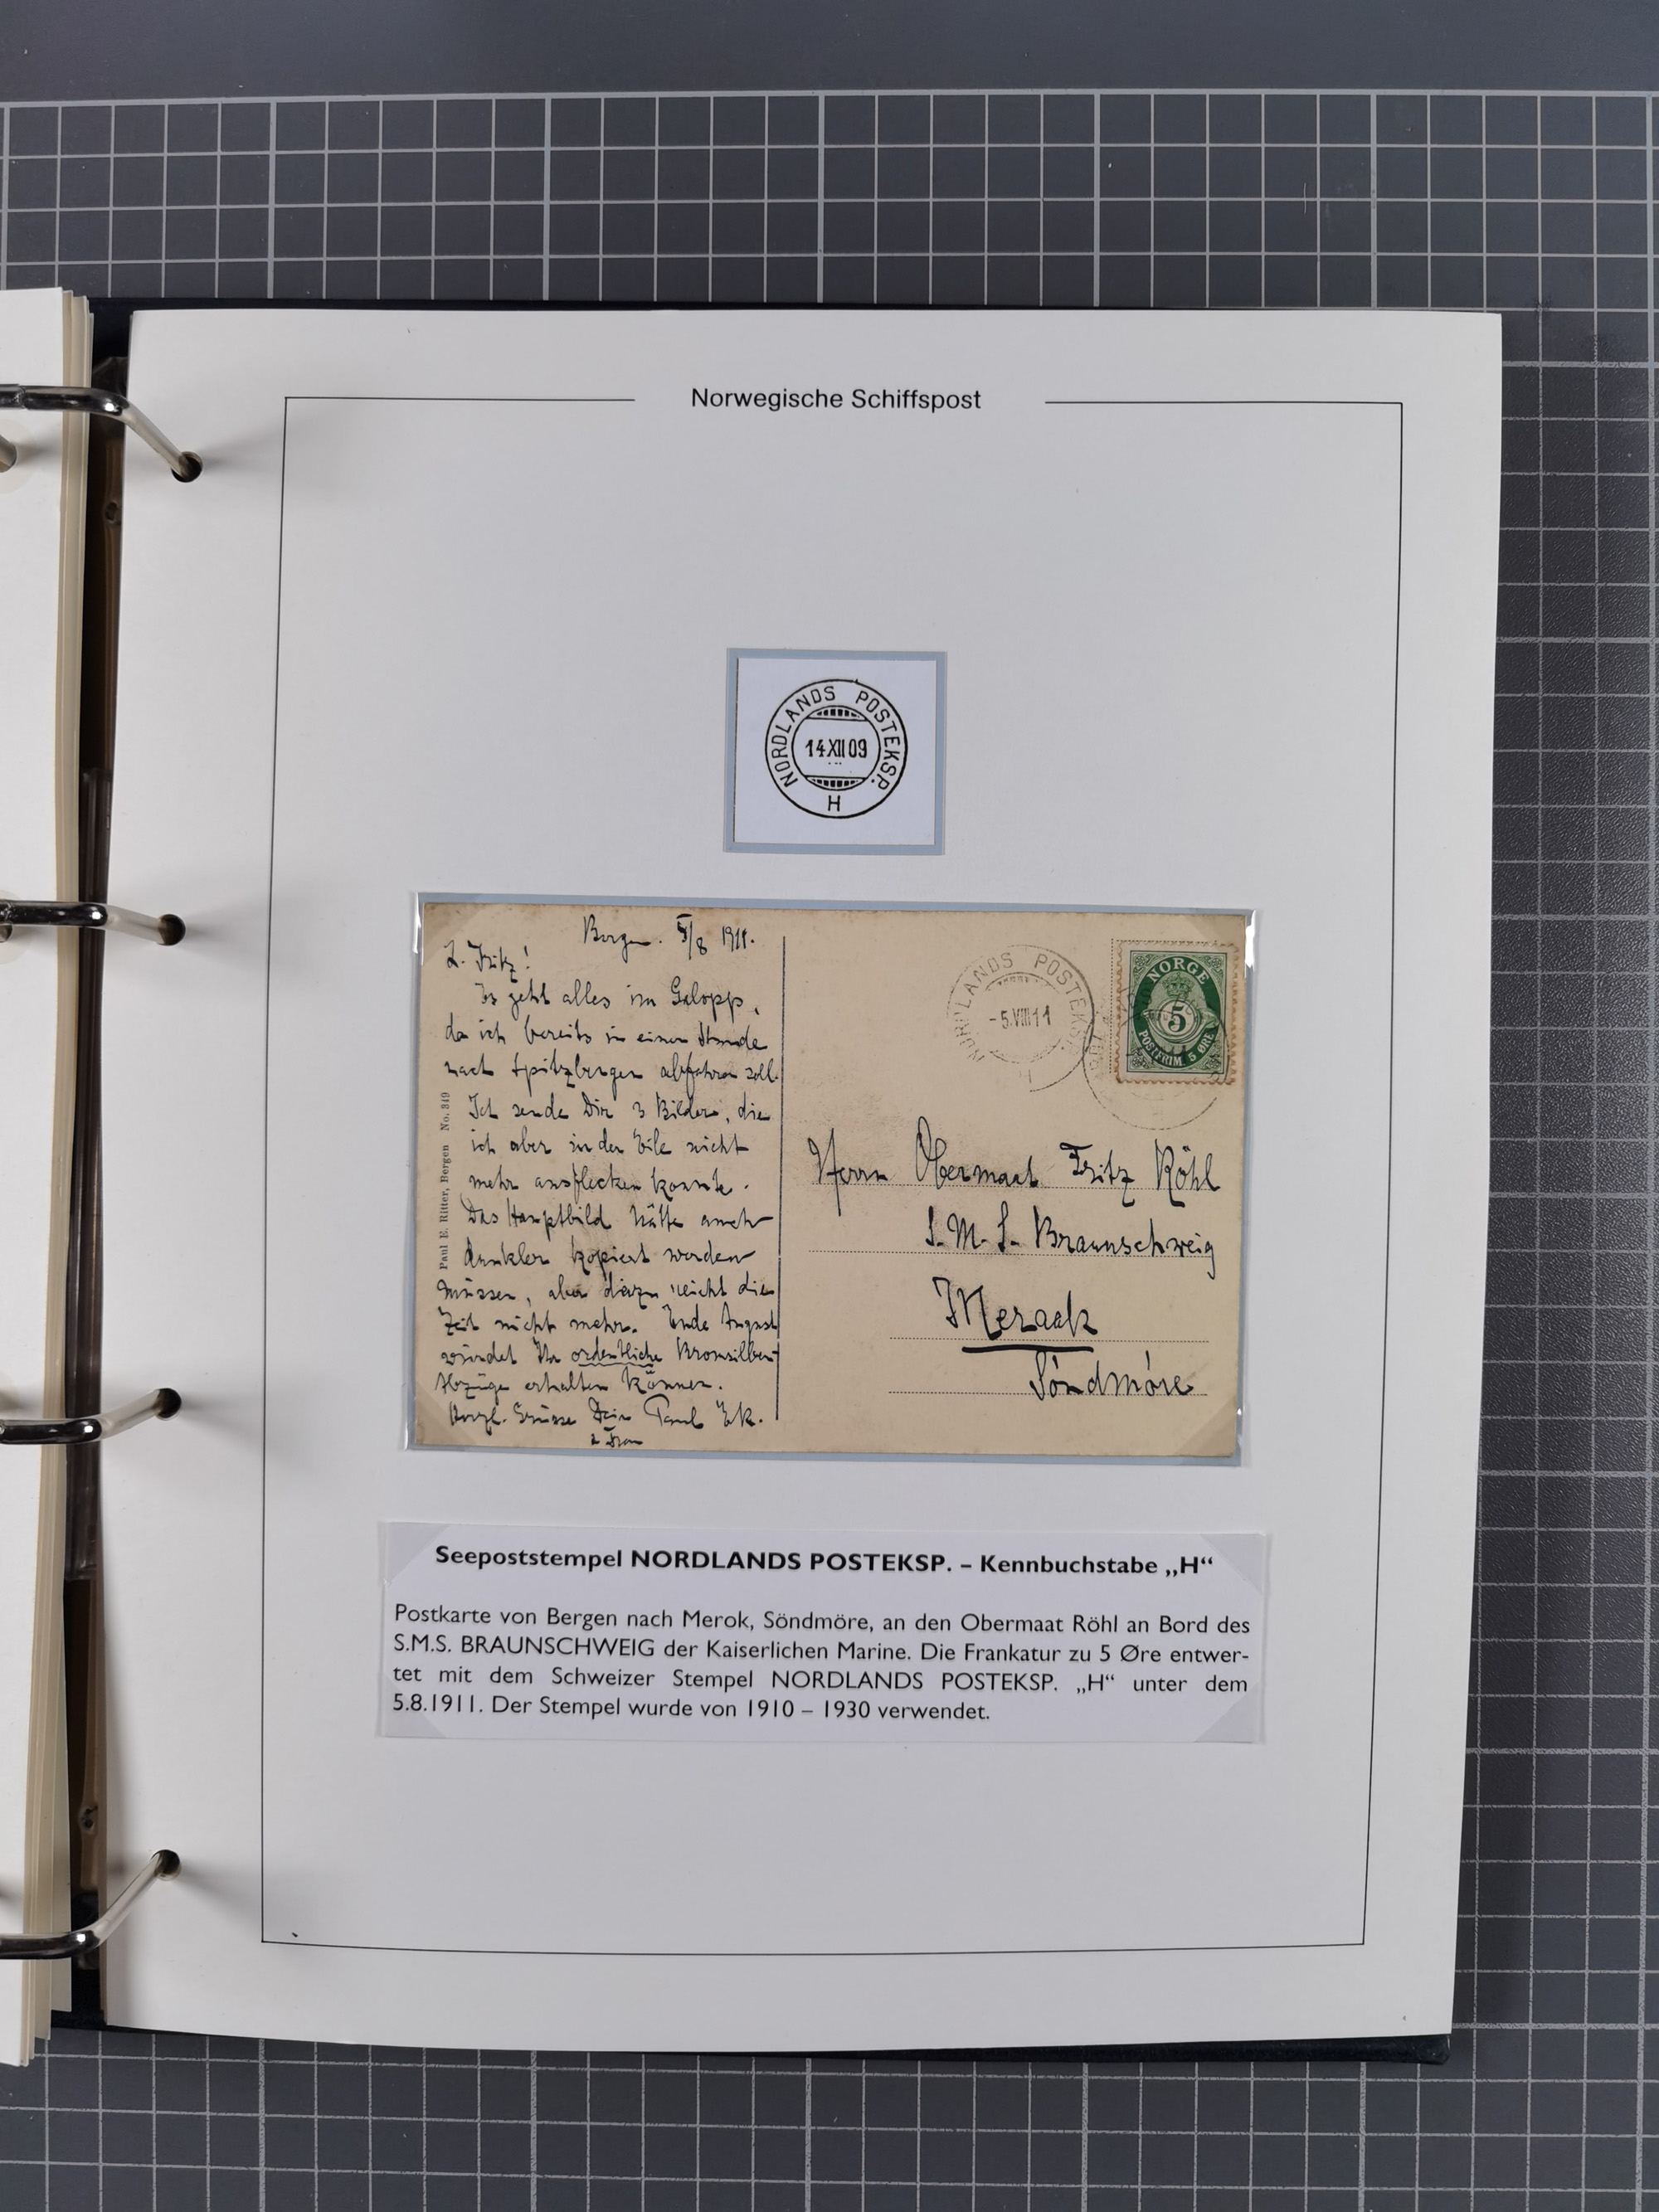 Norwegische Schiffspost
NORDLANDS POSTEKSP.
14 XII 09
H
Bergen. 5/8 1911.
L. Fritz!
Es geht alles im Galopp,
da ich bereits in einer Stunde
nach Spitzbergen abfahren soll.
Ich sende Dir 3 Bilder, die
ich aber in der Eile nicht
mehr ausflecken konnte.
Das Hauptbild hätte auch
dunkler kopiert werden
müssen, aber dazu reicht die
Zeit nicht mehr. Ende August
würdet Ihr ordentliche Bromsilber-
Abzüge erhalten können.
Herzl. Grüsse Dein Paul
Paul E. Ritter, Bergen No. 349
NORDLANDS POSTEKSP.
-5.VIII 11
NORGE
5
POSTFRIM. 5 ØRE
Herrn Obermaat Fritz Röhl
S. M. S. Braunschweig
Meraak
Söndmöre
Seepoststempel NORDLANDS POSTEKSP. – Kennbuchstabe „H“
Postkarte von Bergen nach Merok, Söndmöre, an den Obermaat Röhl an Bord des
S.M.S. BRAUNSCHWEIG der Kaiserlichen Marine. Die Frankatur zu 5 Øre entwer-
tet mit dem Schweizer Stempel NORDLANDS POSTEKSP. „H“ unter dem
5.8.1911. Der Stempel wurde von 1910 – 1930 verwendet.